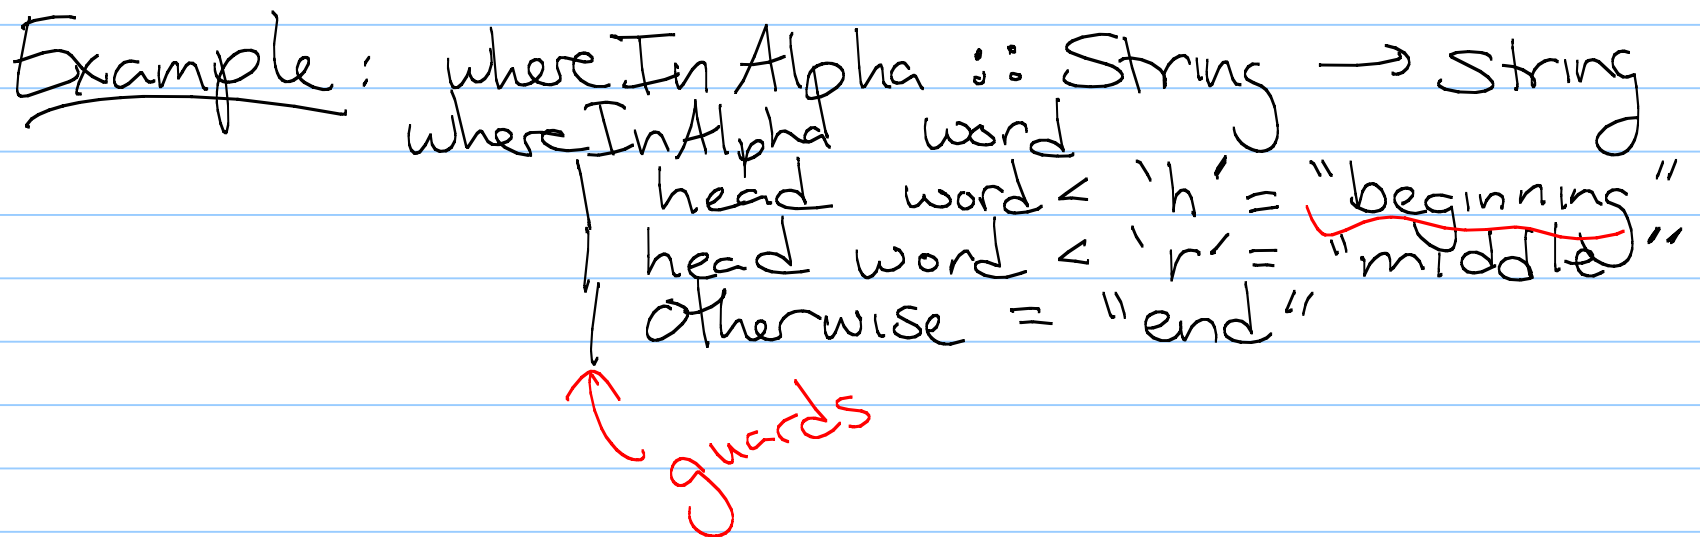 Example: whereInAlpha :: String → String
whereInAlpha word
| head word < 'h' = "beginning"
| head word < 'r' = "middle"
| otherwise = "end"
guards